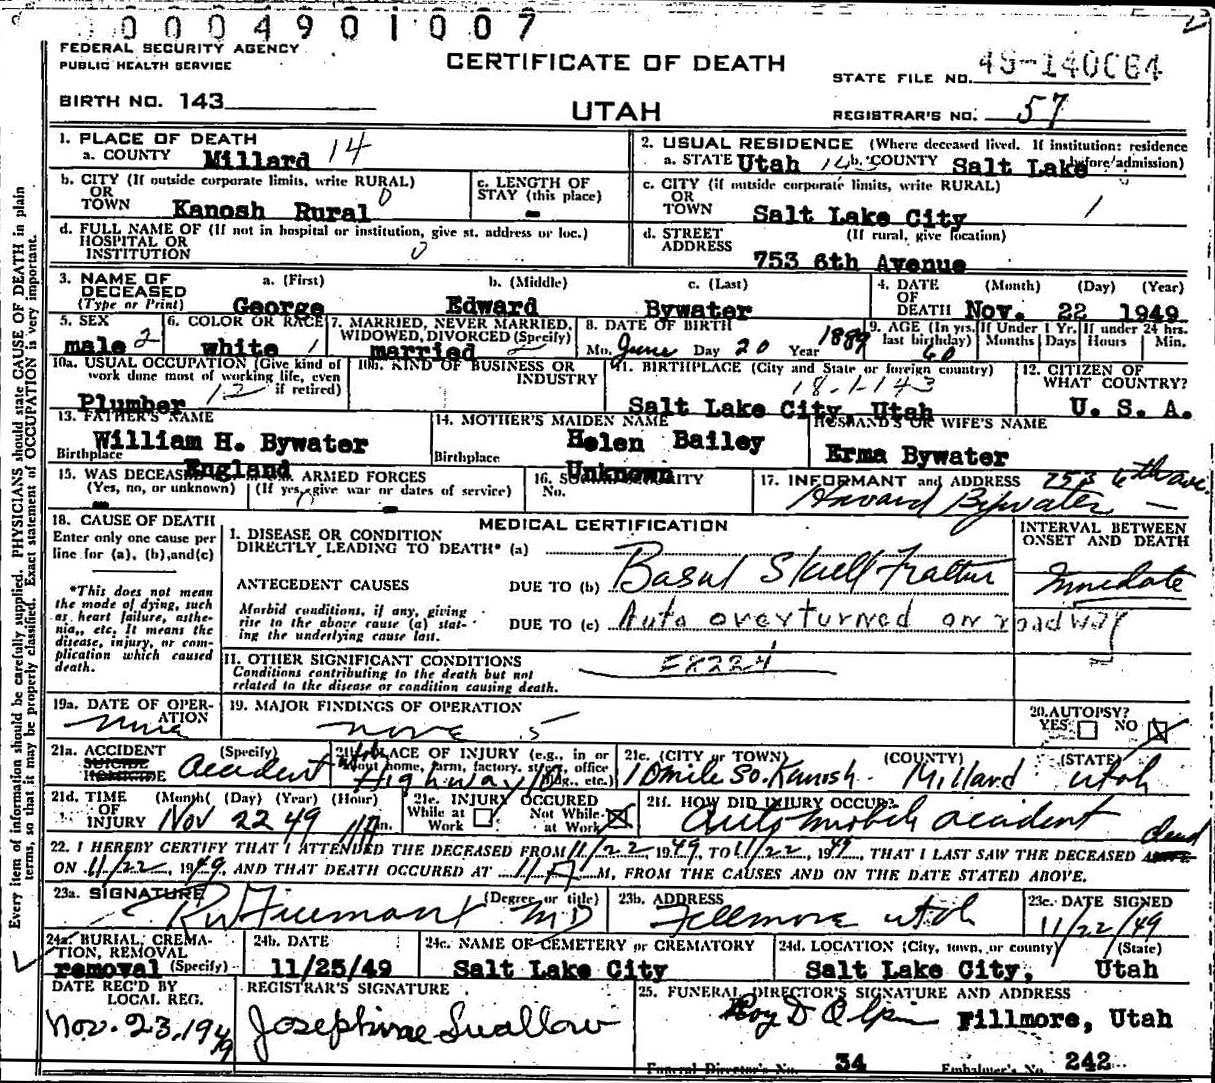 0004901007
FEDERAL SECURITY AGENCY
PUBLIC HEALTH SERVICE
CERTIFICATE OF DEATH
STATE FILE NO. 49-140064
BIRTH NO. 143
UTAH
REGISTRAR'S NO. 57
Every item of information should be carefully supplied. PHYSICIANS should state CAUSE OF DEATH in plain
terms, so that it may be properly classified. Exact statement of OCCUPATION is very important.
1. PLACE OF DEATH
a. COUNTY Millard 14
2. USUAL RESIDENCE (Where deceased lived. If institution: residence
a. STATE Utah b. COUNTY Salt Lake before admission)
b. CITY (If outside corporate limits, write RURAL)
OR
TOWN Kanosh Rural 0
c. LENGTH OF
STAY (this place)
-
c. CITY (if outside corporate limits, write RURAL)
OR
TOWN Salt Lake City 1
d. FULL NAME OF (If not in hospital or institution, give st. address or loc.)
HOSPITAL OR
INSTITUTION 0
d. STREET (If rural, give location)
ADDRESS
753 6th Avenue
3. NAME OF DECEASED
(Type or Print)
a. (First) b. (Middle) c. (Last)
George Edward Bywater
4. DATE OF DEATH (Month) (Day) (Year)
Nov. 22 1949
5. SEX
male 2
6. COLOR OR RACE
white 1
7. MARRIED, NEVER MARRIED,
WIDOWED, DIVORCED (Specify)
married 2
8. DATE OF BIRTH
Mo. June Day 20 Year 1889
9. AGE (In yrs. last birthday) 60
If Under 1 Yr. Months Days
If under 24 hrs. Hours Min.
10a. USUAL OCCUPATION (Give kind of
work done most of working life, even
if retired)
Plumber 12
10b. KIND OF BUSINESS OR
INDUSTRY
11. BIRTHPLACE (City and State or foreign country)
18-1-143
Salt Lake City, Utah
12. CITIZEN OF
WHAT COUNTRY?
U. S. A.
13. FATHER'S NAME
William H. Bywater
Birthplace England
14. MOTHER'S MAIDEN NAME
Helen Bailey
Birthplace Unknown
HUSBAND'S OR WIFE'S NAME
Erma Bywater
15. WAS DECEASED ARMED FORCES
(Yes, no, or unknown) (If yes, give war or dates of service)
- -
16. SOCIAL SECURITY
No.
17. INFORMANT and ADDRESS 753 6th ave.
Howard Bywater
18. CAUSE OF DEATH
Enter only one cause per
line for (a), (b), and (c)
*This does not mean
the mode of dying, such
as heart failure, asthe-
nia,, etc. It means the
disease, injury, or com-
plication which caused
death.
MEDICAL CERTIFICATION
I. DISEASE OR CONDITION
DIRECTLY LEADING TO DEATH* (a)
ANTECEDENT CAUSES
Morbid conditions, if any, giving
rise to the above cause (a) stat-
ing the underlying cause last.
DUE TO (b) Basal Skull Fracture
DUE TO (c) Auto overturned on roadway
INTERVAL BETWEEN
ONSET AND DEATH
Immediate
11. OTHER SIGNIFICANT CONDITIONS
Conditions contributing to the death but not
related to the disease or condition causing death.
E8224
19a. DATE OF OPER-
ATION
None
19. MAJOR FINDINGS OF OPERATION
None 5
20. AUTOPSY?
YES NO
21a. ACCIDENT (Specify)
SUICIDE
HOMICIDE
accident
21b. PLACE OF INJURY (e.g., in or
about home, farm, factory, street, office
bldg., etc.)
Highway
21c. (CITY or TOWN) (COUNTY) (STATE)
10 mile So. Kanosh Millard Utah
21d. TIME OF INJURY (Month) (Day) (Year) (Hour)
Nov 22 49 11 A m.
21e. INJURY OCCURED
While at Work Not While at Work
21f. HOW DID INJURY OCCUR?
automobile accident
22. I HEREBY CERTIFY THAT I ATTENDED THE DECEASED FROM 11/22, 1949, TO 11/22, 1949, THAT I LAST SAW THE DECEASED ALIVE dead
ON 11/22, 1949, AND THAT DEATH OCCURED AT 11 A M, FROM THE CAUSES AND ON THE DATE STATED ABOVE.
23a. SIGNATURE (Degree or title)
MD
23b. ADDRESS
Fillmore Utah
23c. DATE SIGNED
11/22/49
24a. BURIAL, CREMA-
TION, REMOVAL
removal (Specify)
24b. DATE
11/25/49
24c. NAME OF CEMETERY or CREMATORY
Salt Lake City
24d. LOCATION (City, town, or county) (State)
Salt Lake City, Utah
DATE REC'D BY
LOCAL REG.
Nov. 23, 1949
REGISTRAR'S SIGNATURE
Josephine Swallow
25. FUNERAL DIRECTOR'S SIGNATURE AND ADDRESS
Roy D Olpin Fillmore, Utah
Funeral Director's No. 34 Embalmer's No. 242